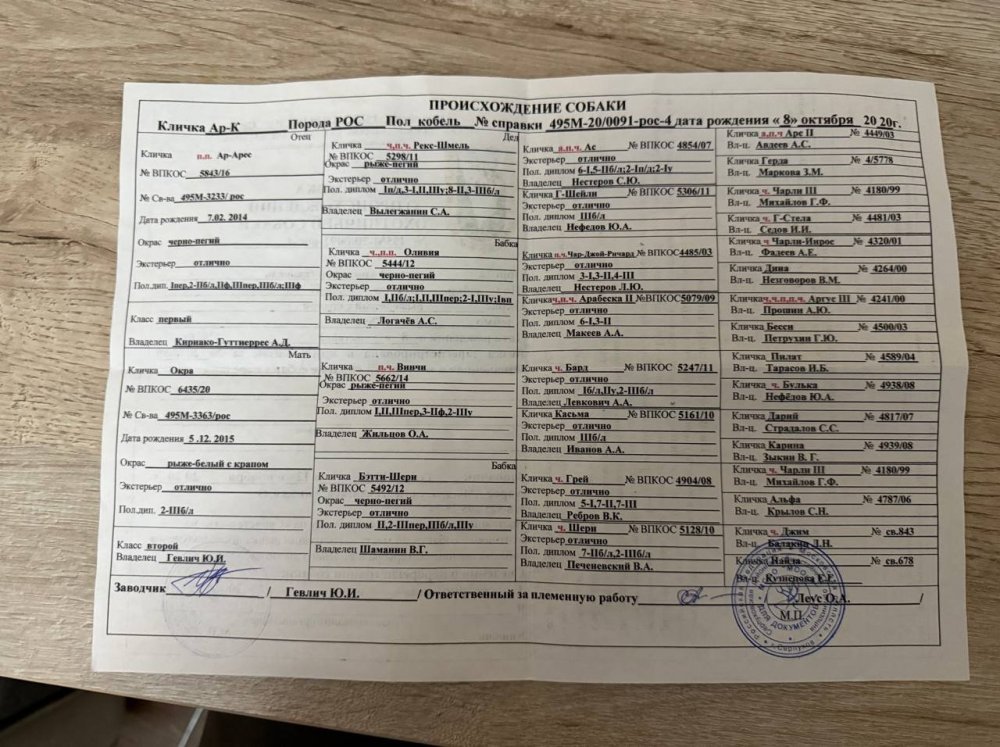 ПРОИСХОЖДЕНИЕ СОБАКИ
Кличка Ар-К Порода РОС Пол кобель № справки 495М-20/0091-рос-4 дата рождения « 8» октября 20 20г.
Отец
Кличка п.п. Ар-Арес
№ ВПКОС 5843/16
№ Св-ва 495М-3233/ рос
Дата рождения 7.02. 2014
Окрас черно-пегий
Экстерьер отлично
Пол.дип. Iпер,2-IIб/л,IIф,IIIпер,IIIб/л;IIIф
Класс первый
Владелец Кириако-Гуттиеррес А.Д.
Мать
Кличка Окра
№ ВПКОС 6435/20
№ Св-ва 495М-3363/рос
Дата рождения 5 .12. 2015
Окрас рыже-белый с крапом
Экстерьер отлично
Пол.дип. 2-IIIб/л
Класс второй
Владелец Гевлич Ю.И.
Дед
Кличка ч,п.ч. Рекс-Шмель
№ ВПКОС 5298/11
Окрас рыже-пегий
Экстерьер отлично
Пол. диплом Iп/д,3-I,II,IIIу;8-II,3-IIIб/л
Владелец Вылегжанин С.А.
Бабка
Кличка ч.,п.п. Оливия
№ ВПКОС 5444/12
Окрас черно-пегий
Экстерьер отлично
Пол. диплом I,IIб/л;I,II,IIIпер;2-I,IIIу;Iвп
Владелец Логачёв А.С.
Кличка п.ч. Винчи
№ ВПКОС 5662/14
Окрас рыже-пегий
Экстерьер отлично
Пол. диплом I,II,IIIпер,3-IIф,2-IIIу
Владелец Жильцов О.А.
Бабка
Кличка Бэтти-Шери
№ ВПКОС 5492/12
Окрас черно-пегий
Экстерьер отлично
Пол. диплом II,2-IIIпер,IIIб/л,IIIу
Владелец Шаманин В.Г.
Кличка а.п.ч. Ас № ВПКОС 4854/07
Экстерьер отлично
Пол. диплом 6-I,5-IIб/л;2-Iп/д;2-Iу
Владелец Нестеров С.Ю.
Кличка Г-Шейли № ВПКОС 5306/11
Экстерьер отлично
Пол. диплом IIIб/л
Владелец Нефедов Ю.А.
Кличка п.ч.Чар-Джой-Ричард № ВПКОС4485/03
Экстерьер отлично
Пол. диплом 3-I,3-II,4-III
Владелец Нестеров Л.Ю.
Кличкач,п.ч. Арабеска II №ВПКОС5079/09
Экстерьер отлично
Пол. диплом 6-I,3-II
Владелец Макеев А.А.
Кличка ч. Бард № ВПКОС 5247/11
Экстерьер отлично
Пол. диплом Iб/л,IIу,2-IIIб/л
Владелец Левкович А.А.
Кличка Касьма № ВПКОС 5161/10
Экстерьер отлично
Пол. диплом IIIб/л
Владелец Иванов А.А.
Кличка ч. Грей № ВПКОС 4904/08
Экстерьер отлично
Пол. диплом 5-I,7-II,7-III
Владелец Ребров В.К.
Кличка ч. Шери № ВПКОС 5128/10
Экстерьер отлично
Пол. диплом 7-IIб/л,2-IIIб/л
Владелец Печеневский В.А.
Кличка а.п.ч Арс II № 4449/03
Вл-ц. Авдеев А.С.
Кличка Герда № 4/5778
Вл-ц. Маркова З.М.
Кличка ч. Чарли III № 4180/99
Вл-ц. Михайлов Г.Ф.
Кличка ч. Г-Стела № 4481/03
Вл-ц. Седов И.И.
Кличка ч Чарли-Нирос № 4320/01
Вл-ц. Фадеев А.Е.
Кличка Дина № 4264/00
Вл-ц. Незговоров В.М.
Кличкач,ч,п,п.ч. Аргус III № 4241/00
Вл-ц. Прошин А.Ю.
Кличка Бесси № 4500/03
Вл-ц. Петрухин Г.Ю.
Кличка Пилат № 4589/04
Вл-ц. Тарасов И.Б.
Кличка ч. Булька № 4938/08
Вл-ц. Нефёдов Ю.А.
Кличка Дарий № 4817/07
Вл-ц. Страдалов С.С.
Кличка Карина № 4939/08
Вл-ц. Зыкин В. Г.
Кличка ч. Чарли III № 4180/99
Вл-ц. Михайлов Г.Ф.
Кличка Альфа № 4787/06
Вл-ц. Крылов С.Н.
Кличка ч. Джим № св.843
Вл-ц. Балакин Л.Н.
Кличка Найда № св.678
Вл-ц. Кузнецова Е.Е.
Заводчик / Гевлич Ю.И. / Ответственный за племенную работу Леус О.А. /
М.П.
ДЛЯ ДОКУМЕНТОВ
г. Серпухов